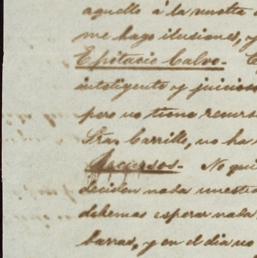 aquello á la vuelta d
me hago ilusiones, y
Epitacio Calvo.
inteligente y juicios
pero no tiene recurs
Fran Carrillo, no ha
Recursos. No qui
deciden nada nuestro
debemos esperar nada
barras, y en el dia no